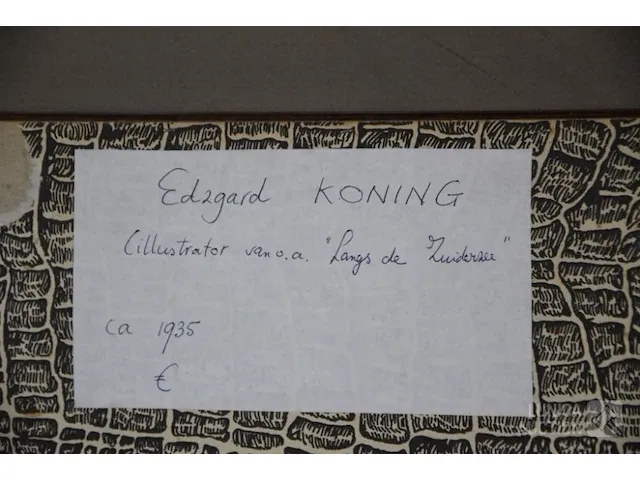 Edzgard KONING
(illustrator van o.a. "Langs de Zuiderzee"
ca 1935
€